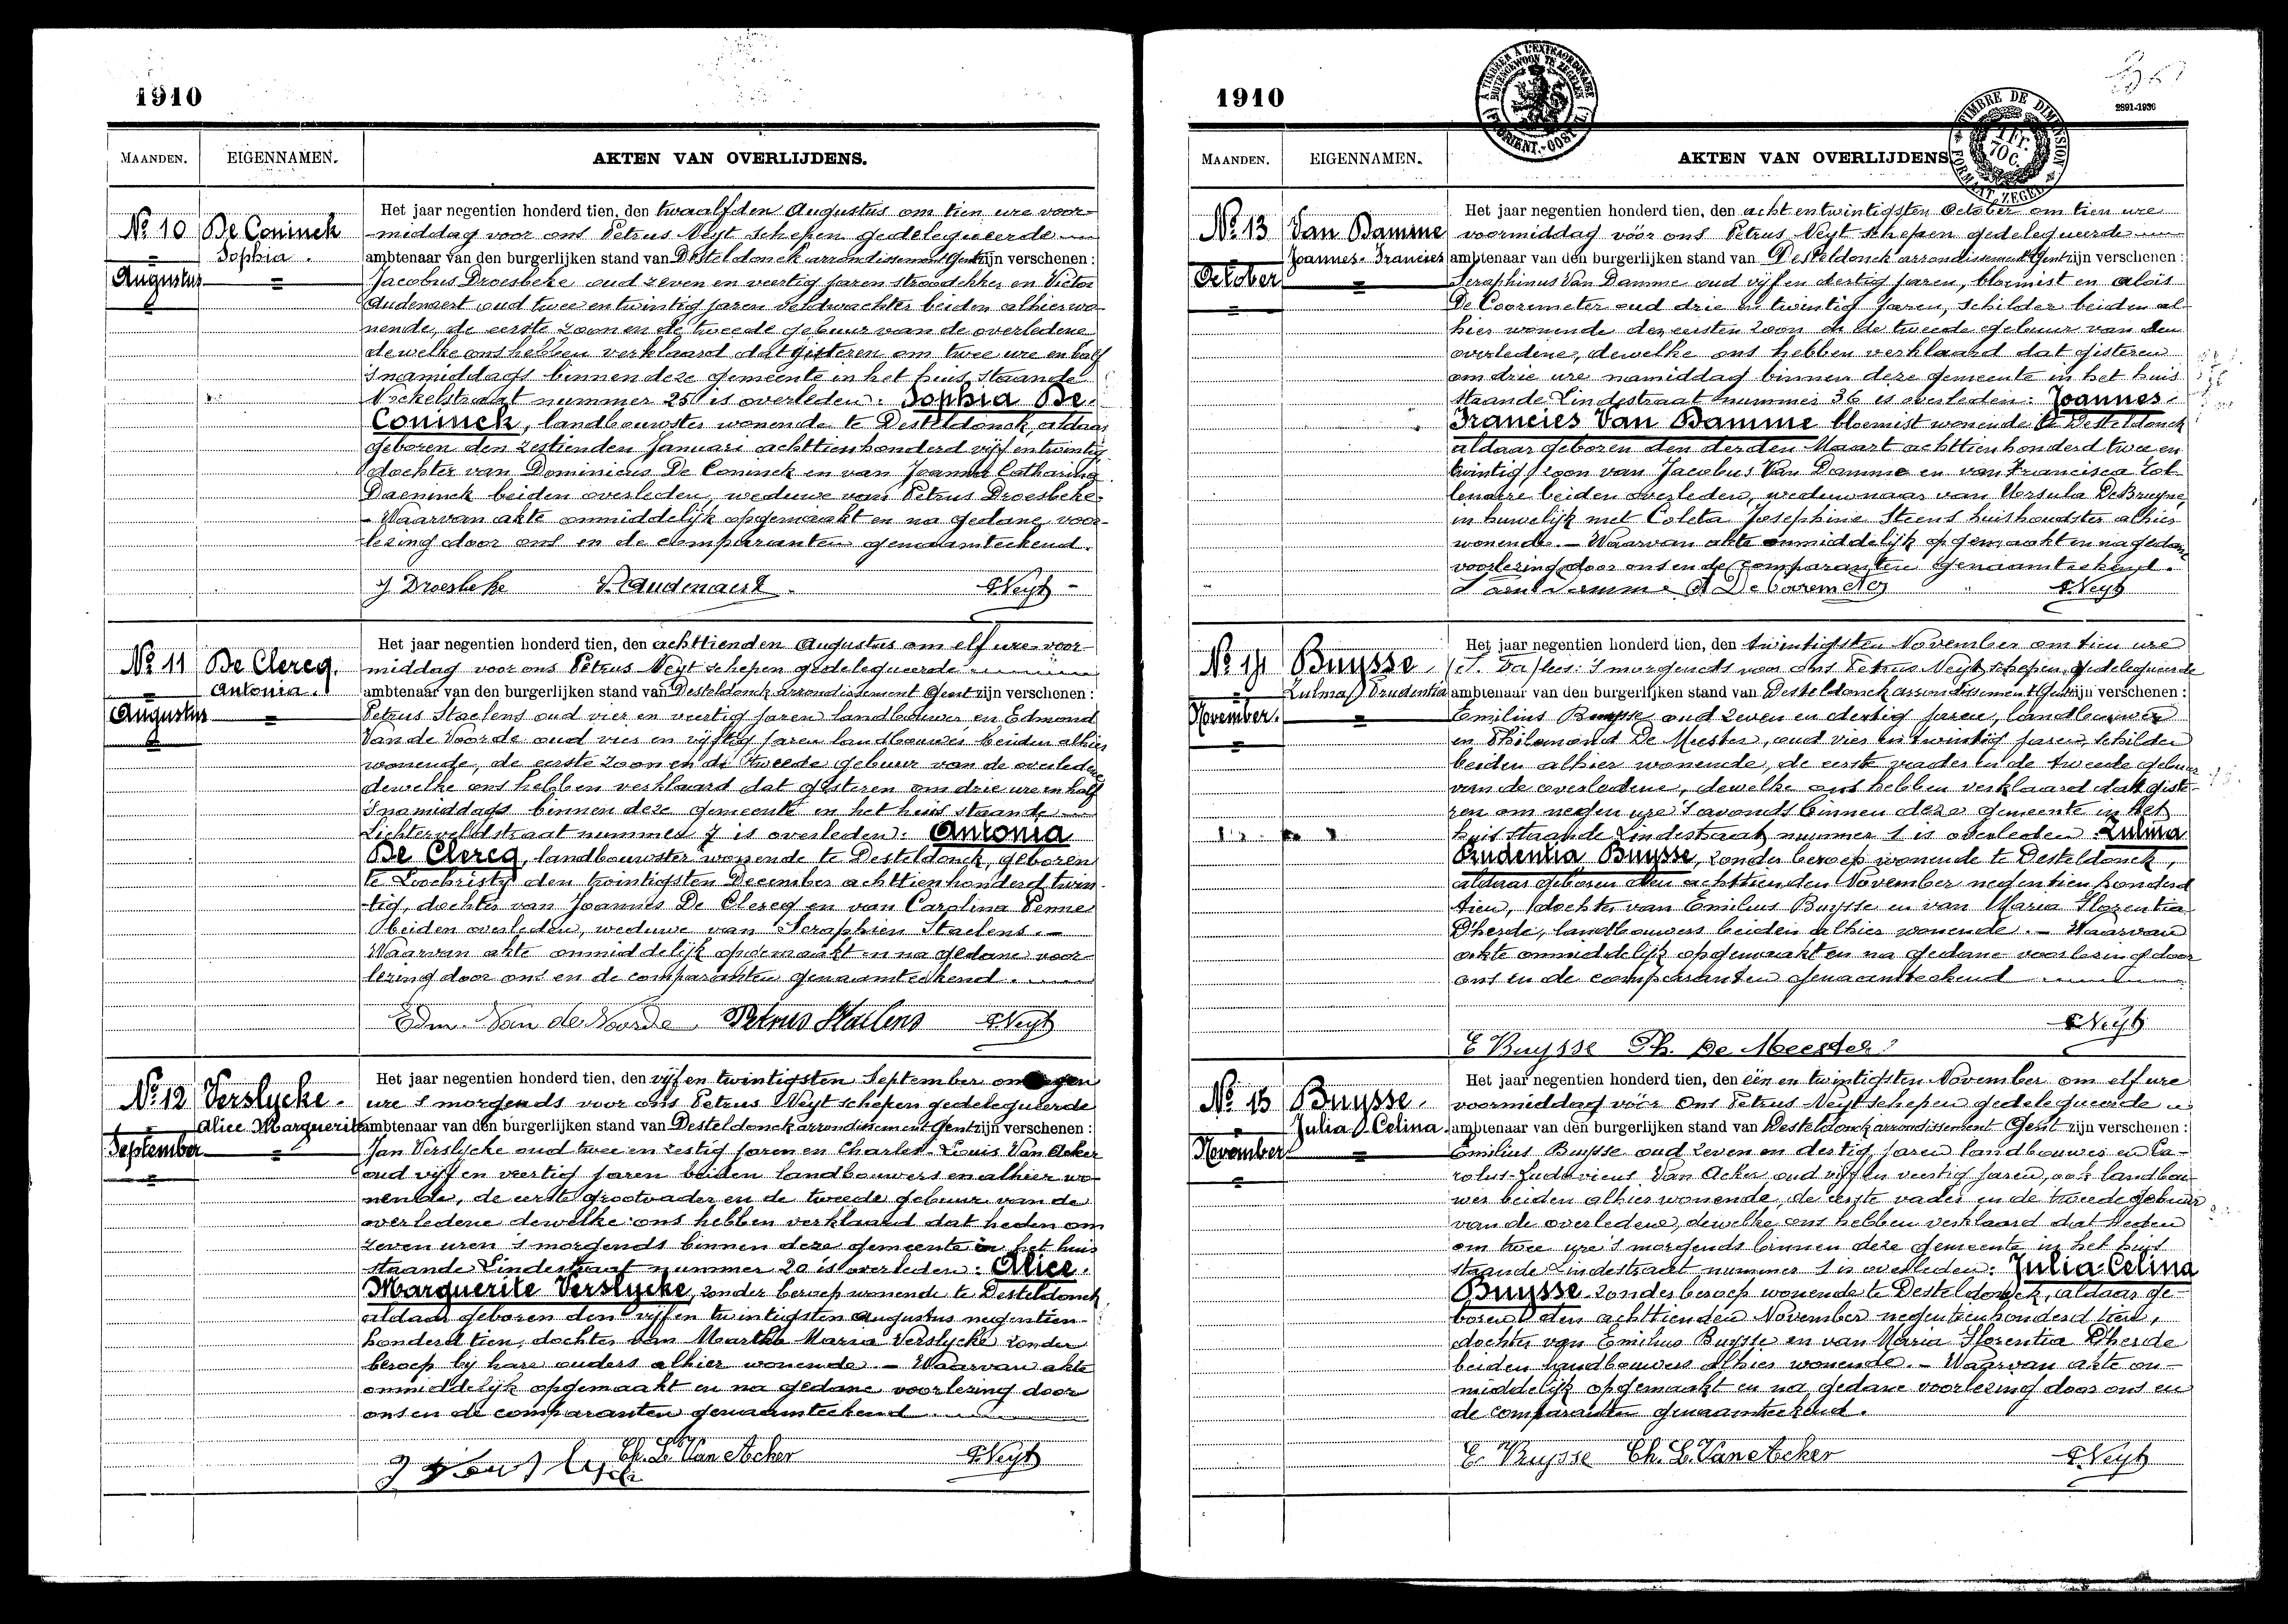 1910
MAANDEN. EIGENNAMEN. AKTEN VAN OVERLIJDENS.
No 10 De Coninck Sophia. Augustus
Het jaar negentien honderd tien, den twaalfden Augustus om tien ure voor-
middag voor ons Petrus Neyt schepen gedelegueerde
ambtenaar van den burgerlijken stand van Desteldonck arrondissement Gent zijn verschenen :
Jacobus Droesbeke oud zeven en veertig jaren stroodekker en Victor
Audenaert oud twee en twintig jaren veldwachter beiden alhier wo-
nende, de eerste zoon en de tweede gebuur van de overledene
dewelke ons hebben verklaard dat gisteren om twee ure en half
s'namiddags binnen deze gemeente in het huis staande
nummer 25 is overleden: Sophia De
Coninck, landbouwster wonende te Desteldonck, aldaar
geboren den zestienden Januari achttienhonderd vijf en twintig
dochter van Dominicus De Coninck en van Joanna Catharina
Daeninck beiden overleden, weduwe van Petrus Droesbeke.
- Waarvan akte onmiddelijk opgemaakt en na gedane voor-
lezing door ons en de comparanten genaamteekend.
J Droesbeke V. Audenaert P. Neyt
No 11 De Clercq. Antonia. Augustus
Het jaar negentien honderd tien, den achttienden Augustus om elf ure voor-
middag voor ons Petrus Neyt schepen gedelegueerde
ambtenaar van den burgerlijken stand van Desteldonck arrondissement Gent zijn verschenen :
Petrus Staelens oud vier en veertig jaren landbouwer en Edmond
Van de Voorde oud vier en vijftig jaren landbouwer beiden alhier
wonende, de eerste zoon en de tweede gebuur van de overledene
dewelke ons hebben verklaard dat gisteren om drie ure en half
s'namiddags binnen deze gemeente in het huis staande
Lichterveldstraat nummer 7 is overleden: Antonia
De Clercq, landbouwster wonende te Desteldonck, geboren
te Loochristy den twintigsten December achttienhonderd twin-
tig, dochter van Joannes De Clercq en van Carolina Penne
beiden overleden, weduwe van Seraphien Staelens. -
Waarvan akte onmiddelijk opgemaakt en na gedane voor-
lezing door ons en de comparanten genaamteekend.
Edm. Van de Voorde Petrus Staelens P. Neyt
No 12 Verslycke. Alice Marguerite September
Het jaar negentien honderd tien, den vijf en twintigsten September om negen
ure s'morgends voor ons Petrus Neyt schepen gedelegueerde
ambtenaar van den burgerlijken stand van Desteldonck arrondissement Gent zijn verschenen :
Jan Verslycke oud twee en zestig jaren en Charles-Louis Van Acker
oud vijf en veertig jaren beiden landbouwers en alhier wo-
nende, de eerste grootvader en de tweede gebuur van de
overledene dewelke ons hebben verklaard dat heden om
zeven uren s'morgends binnen deze gemeente in het huis
staande Lindestraat nummer 20 is overleden: Alice
Marguerite Verslycke, zonder beroep wonende te Desteldonck
aldaar geboren den vijf en twintigsten Augustus negentien-
honderd tien, dochter van Martha Maria Verslycke zonder
beroep bij hare ouders alhier wonende. - Waarvan akte
onmiddelijk opgemaakt en na gedane voorlezing door
ons en de comparanten genaamteekend.
Ch. L. Van Acker P. Neyt
1910
2891-1936
TIMBRE A L'EXTRAORDINAIRE BUITENGEWOON TE ZEGELEN
TIMBRE DE DIMENSION 1 Fr. 70 C. FORMAAT ZEGEL
MAANDEN. EIGENNAMEN. AKTEN VAN OVERLIJDENS
No 13 Van Damme Joannes-Francies October
Het jaar negentien honderd tien, den acht en twintigsten October om tien ure
voormiddag vóór ons Petrus Neyt schepen gedelegueerde
ambtenaar van den burgerlijken stand van Desteldonck arrondissement Gent zijn verschenen :
Seraphinus Van Damme oud vijf en dertig jaren, bloemist en Alois
De Cooremeter oud drie en twintig jaren, schilder beiden al-
hier wonende den eersten zoon en de tweede gebuur van den
overledene, dewelke ons hebben verklaard dat gisteren
om drie ure namiddag binnen deze gemeente in het huis
staande Lindestraat nummer 36 is overleden: Joannes
Francies Van Damme bloemist wonende te Desteldonck
aldaar geboren den derden Maart achttienhonderd twee en
twintig, zoon van Jacobus Van Damme en van Francisca Tol-
lenaere beiden overleden, weduwnaar van Ursula De Bruyne,
in huwelijk met Coleta Josephine Steens huishoudster alhier
wonende. - Waarvan akte onmiddelijk opgemaakt en na gedane
voorlezing door ons en de comparanten genaamteekend.
A De Cooremeter P. Neyt
No 14 Buysse Zulma Prudentia November.
Het jaar negentien honderd tien, den twintigsten November om tien ure
s'morgends voor ons Petrus Neyt schepen gedelegueerde
ambtenaar van den burgerlijken stand van Desteldonck arrondissement Gent zijn verschenen :
Emilius Buysse oud zeven en dertig jaren, landbouwer
en Philemond De Meester, oud vier en twintig jaren, schilder
beiden alhier wonende, de eerste vader en de tweede gebuur
van de overledene, dewelke ons hebben verklaard dat giste-
ren om negen ure s'avonds binnen deze gemeente in het
huis staande Lindestraat nummer 1 is overleden: Zulma
Prudentia Buysse, zonder beroep wonende te Desteldonck,
aldaar geboren den achttienden November negentien honderd
tien, dochter van Emilius Buysse en van Maria Florentia
Dherde, landbouwers beiden alhier wonende. - Waarvan
akte onmiddelijk opgemaakt en na gedane voorlezing door
ons en de comparanten genaamteekend
P. Neyt
E Buysse Ph. De Meester
No 15 Buysse. Julia Celina. November
Het jaar negentien honderd tien, den een en twintigsten November om elf ure
voormiddag vóór ons Petrus Neyt schepen gedelegueerde
ambtenaar van den burgerlijken stand van Desteldonck arrondissement Gent zijn verschenen :
Emilius Buysse oud zeven en dertig jaren landbouwer en Ca-
rolus-Ludovicus Van Acker oud vijf en veertig jaren, ook landbou-
wer beiden alhier wonende, de eerste vader en de tweede gebuur
van de overledene, dewelke ons hebben verklaard dat heden
om twee ure s'morgends binnen deze gemeente in het huis
staande Lindestraat nummer 1 is overleden: Julia Celina
Buysse zonder beroep wonende te Desteldonck, aldaar ge-
boren den achttienden November negentienhonderd tien,
dochter van Emilius Buysse en van Maria Florentia Dherde
beiden landbouwers alhier wonende. - Waarvan akte on-
middelijk opgemaakt en na gedane voorlezing door ons en
de comparanten genaamteekend.
E. Buysse Ch. L. Van Acker P. Neyt